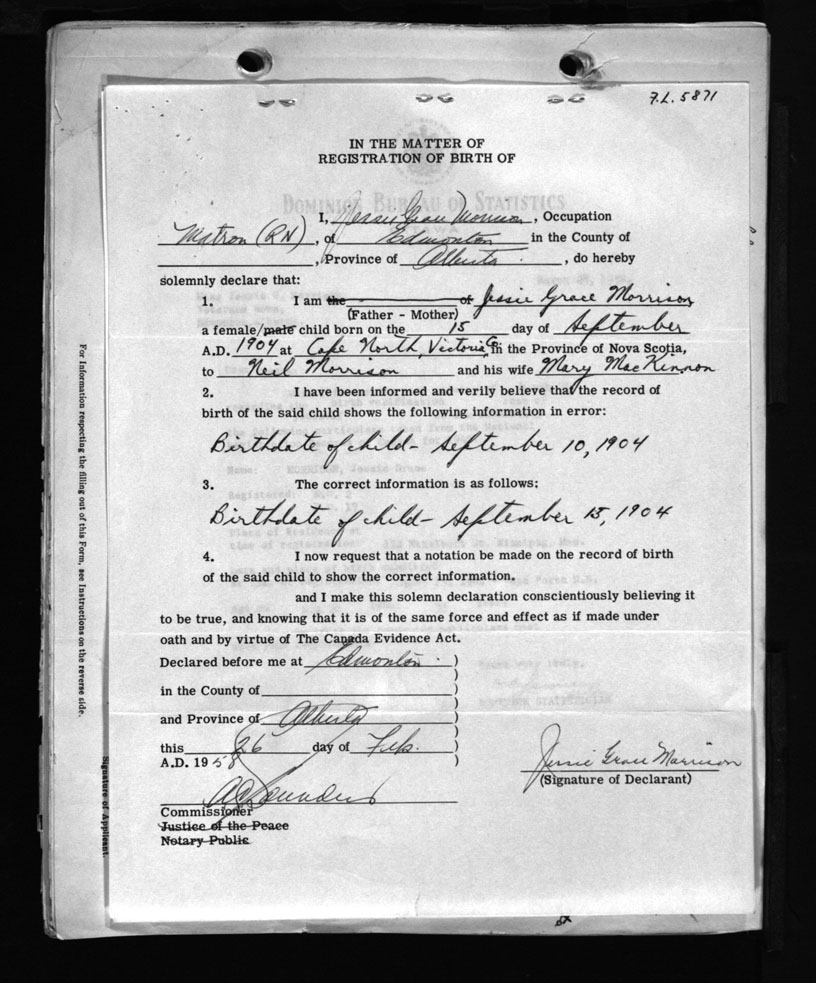 F.L. 5871
IN THE MATTER OF
REGISTRATION OF BIRTH OF
DOMINION BUREAU OF STATISTICS
I, Jessie Grace Morrison, Occupation
Matron (RN), of Edmonton in the County of
, Province of Alberta, do hereby
solemnly declare that:
1. I am the of Jessie Grace Morrison
(Father - Mother)
a female/male child born on the 15 day of September
A.D. 1904 at Cape North, Victoria in the Province of Nova Scotia,
to Neil Morrison and his wife Mary MacKinnon
2. I have been informed and verily believe that the record of
birth of the said child shows the following information in error:
Birthdate of child - September 10, 1904
3. The correct information is as follows:
Birthdate of child - September 15, 1904
4. I now request that a notation be made on the record of birth
of the said child to show the correct information.
and I make this solemn declaration conscientiously believing it
to be true, and knowing that it is of the same force and effect as if made under
oath and by virtue of The Canada Evidence Act.
Declared before me at Edmonton )
in the County of )
and Province of Alberta )
this 26 day of Feb. )
A.D. 1958 )
Jessie Grace Morrison
(Signature of Declarant)
Saunders
Commissioner
Justice of the Peace
Notary Public
For Information respecting the filling out of this Form, see Instructions on the reverse side.
Signature of Applicant.